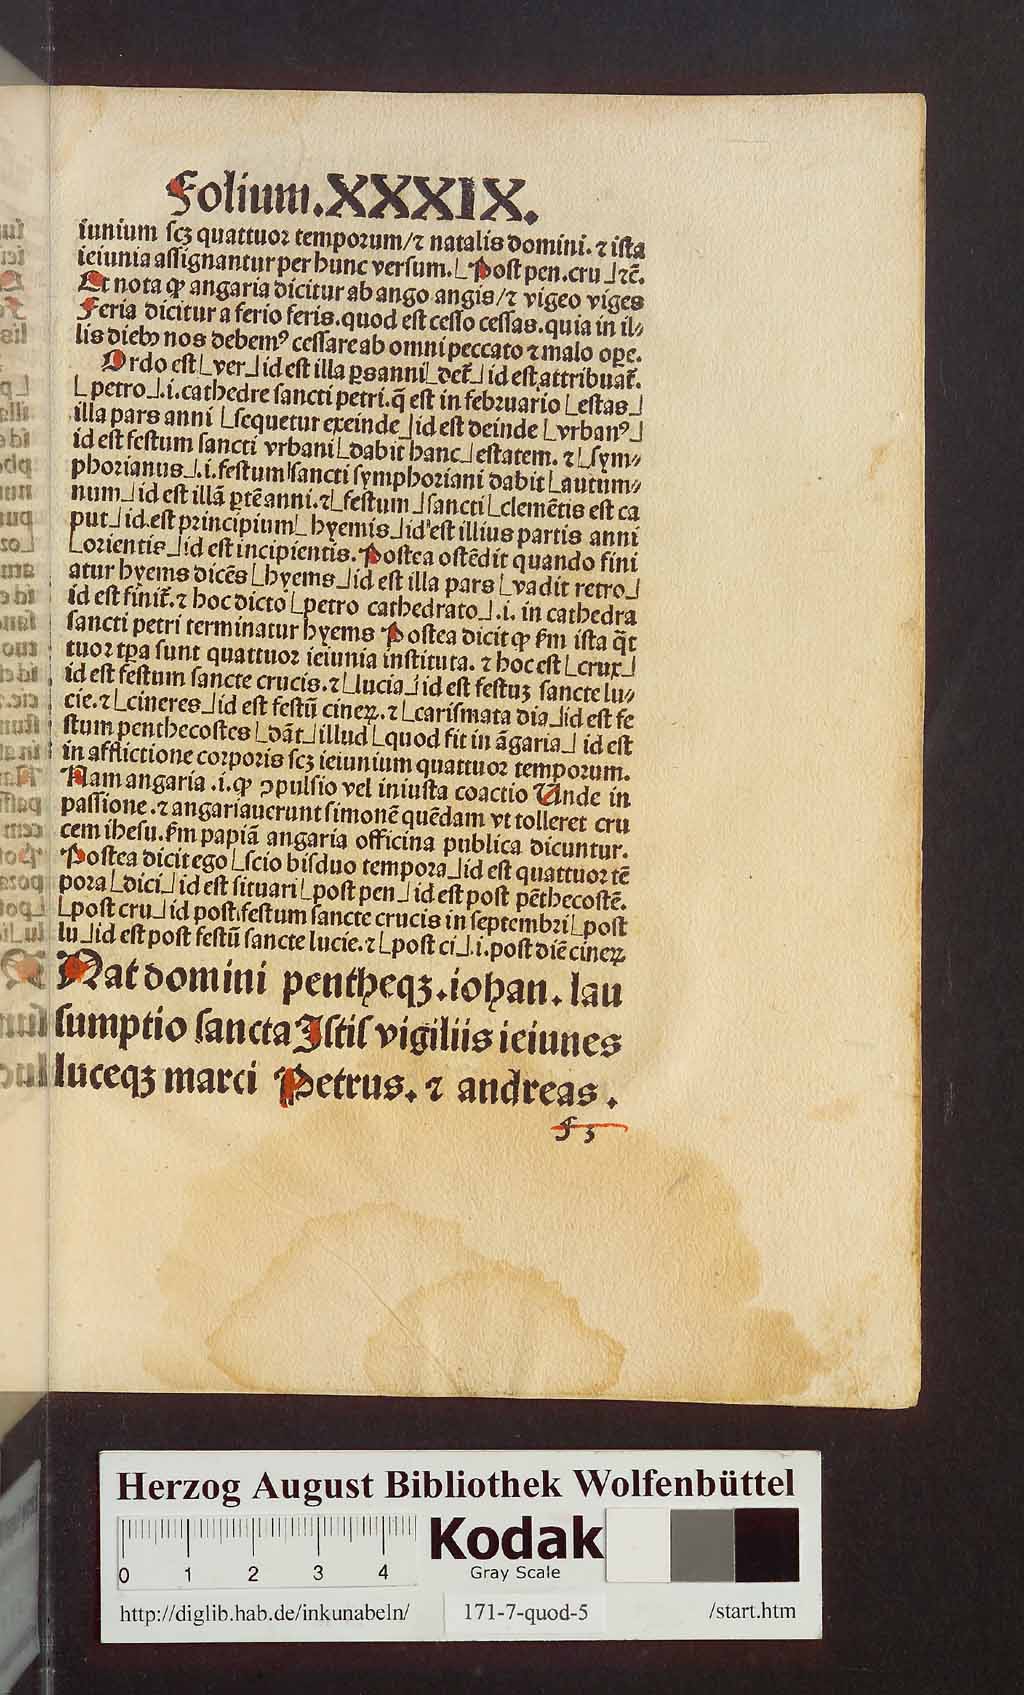 Folium.XXXIX.
iunium scꝫ quattuor temporum/⁊ natalis domini. ⁊ ista
ieiunia assignantur per hunc versum.⌊Post pen.cru⌋⁊cē.
Et nota ꝙ angaria dicitur ab ango angis/⁊ vigeo viges
Feria dicitur a ferio feris.quod est cesso cessas.quia in il⸗
lis diebꝰ nos debemꝰ cessare ab omni peccato ⁊ malo oꝑe.
Ordo est⌊ver⌋id est illa ꝑs anni⌊det̄⌋id est attribuat̄.
⌊petro⌋.i.cathedre sancti petri.q̄ est in februario⌊estas⌋
illa pars anni⌊sequetur exeinde⌋id est deinde⌊vrbanꝰ⌋
id est festum sancti vrbani⌊dabit hanc⌋estatem. ⁊⌊sym⸗
phorianus⌋.i.festum sancti symphoriani dabit⌊autum⸗
num⌋id est illā ꝑtē anni.⁊⌊festum⌋sancti⌊clemētis est ca
put⌋id.est principium⌊hyemis⌋id est illius partis anni
⌊orientis⌋id est incipientis.Postea ostēdit quando fini
atur hyems dicēs⌊hyems⌋id est illa pars⌊vadit retro⌋
id est finit̄.⁊ hoc dicto⌊petro cathedrato⌋.i. in cathedra
sancti petri terminatur hyems Postea dicit ꝙ fm ista q̄t
tuor tp̄a sunt quattuor ieiunia instituta. ⁊ hoc est⌊crux⌋
id est festum sancte crucis.⁊⌊lucia⌋id est festuꝫ sancte lu⸗
cie.⁊⌊cineres⌋id est festū cineꝝ.⁊⌊carismata dia⌋id est fe
stum penthecostes⌊dāt⌋illud⌊quod fit in āgaria⌋ id est
in afflictione corporis scꝫ ieiunium quattuor temporum.
Nam angaria .i.ꝙ ꝯpulsio vel iniusta coactio Unde in
passione.⁊ angariauerunt simonē quēdam vt tolleret cru
cem ihesu.fm papiā angaria officina publica dicuntur.
Postea dicit ego⌊scio bisduo tempora⌋id est quattuor tē
pora⌊dici⌋id est situari⌊post pen⌋id est post pēthecostē.
⌊post cru⌋id post festum sancte crucis in septembri⌊post
lu⌋id est post festū sancte lucie.⁊⌊post ci⌋.i.post diē cineꝝ.
Nat domini pentheqꝫ.iohan. lau
sumptio sancta Istis vigiliis ieiunes
luceqꝫ marci Petrus. ⁊ andreas.
f 3
Herzog August Bibliothek Wolfenbüttel
0 1 2 3 4
Kodak
Gray Scale
http://diglib.hab.de/inkunabeln/ 171-7-quod-5 /start.htm